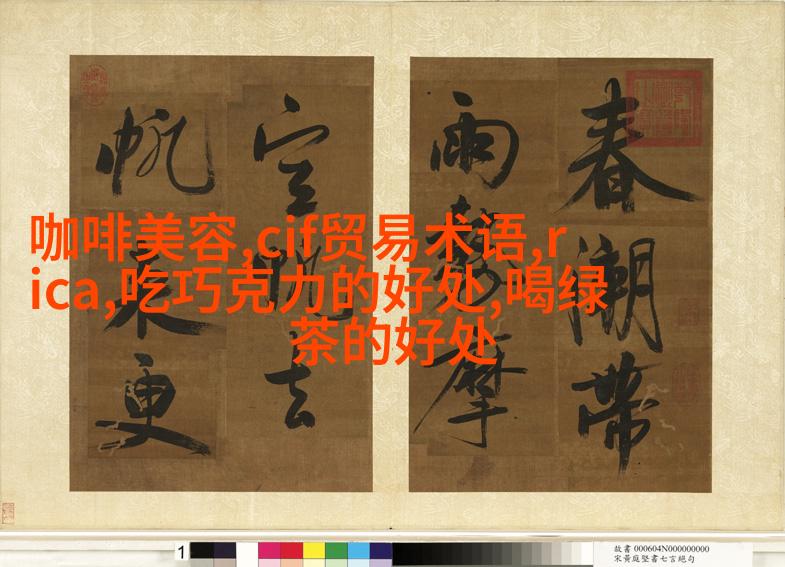 咖啡美容,cif贸易术语,r
ica,吃巧克力的好处,喝绿
茶的好处
春潮帶
雨摩
空去
帆來更
1
故書 000604N000000000
宋黃庭堅書七言絕句